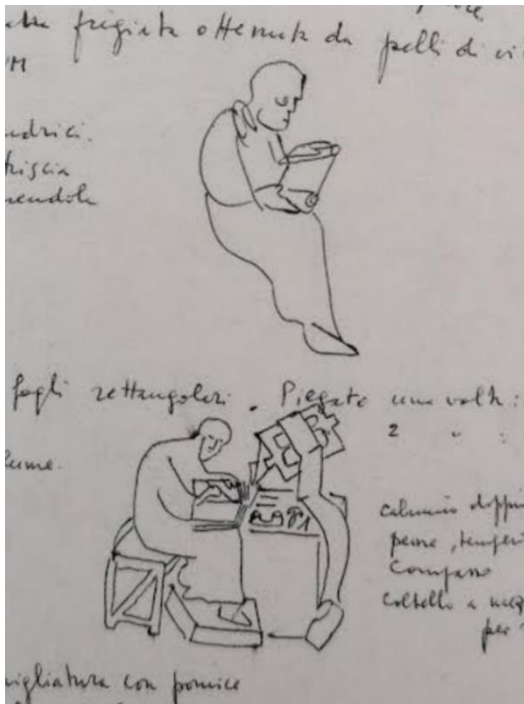 ottenuta da pelli di vi
ndrici.
triscia
fogli rettangolari. Piegato una volta:
2 " " :
calamaio doppi
penne, temperi
Compasso
coltello a
per
igliatura con pomice